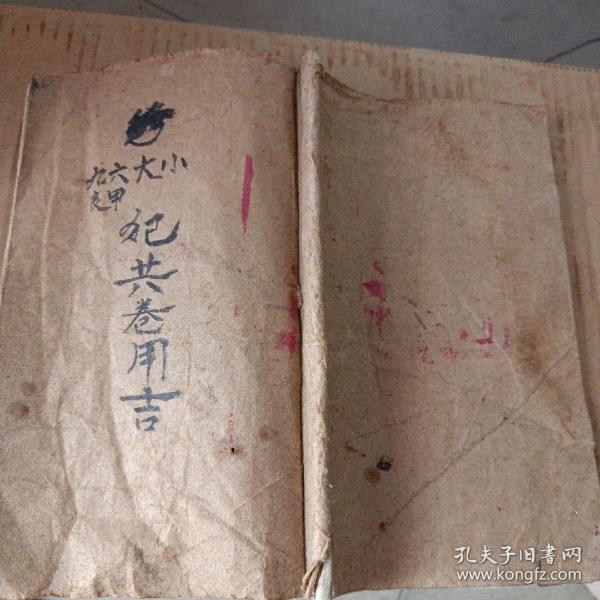 小大六九
甲
妃共卷用吉
孔夫子旧書网
www.kongfz.com